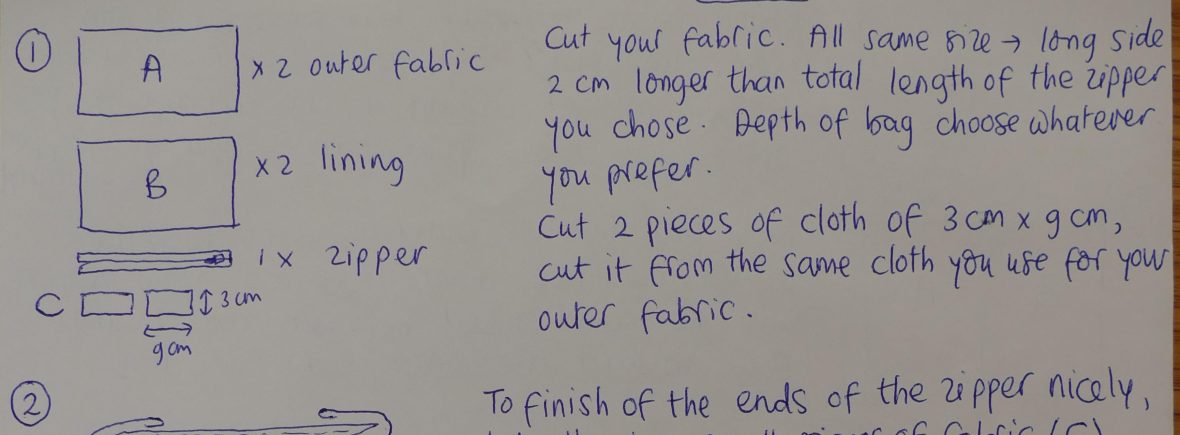 ①
A
x 2 outer fabric
B
x 2 lining
1 x zipper
C
3 cm
9 cm
Cut your fabric. All same size → long side
2 cm longer than total length of the zipper
you chose. Depth of bag choose whatever
you prefer.
Cut 2 pieces of cloth of 3 cm x 9 cm,
cut it from the same cloth you use for your
outer fabric.
②
To finish of the ends of the zipper nicely,